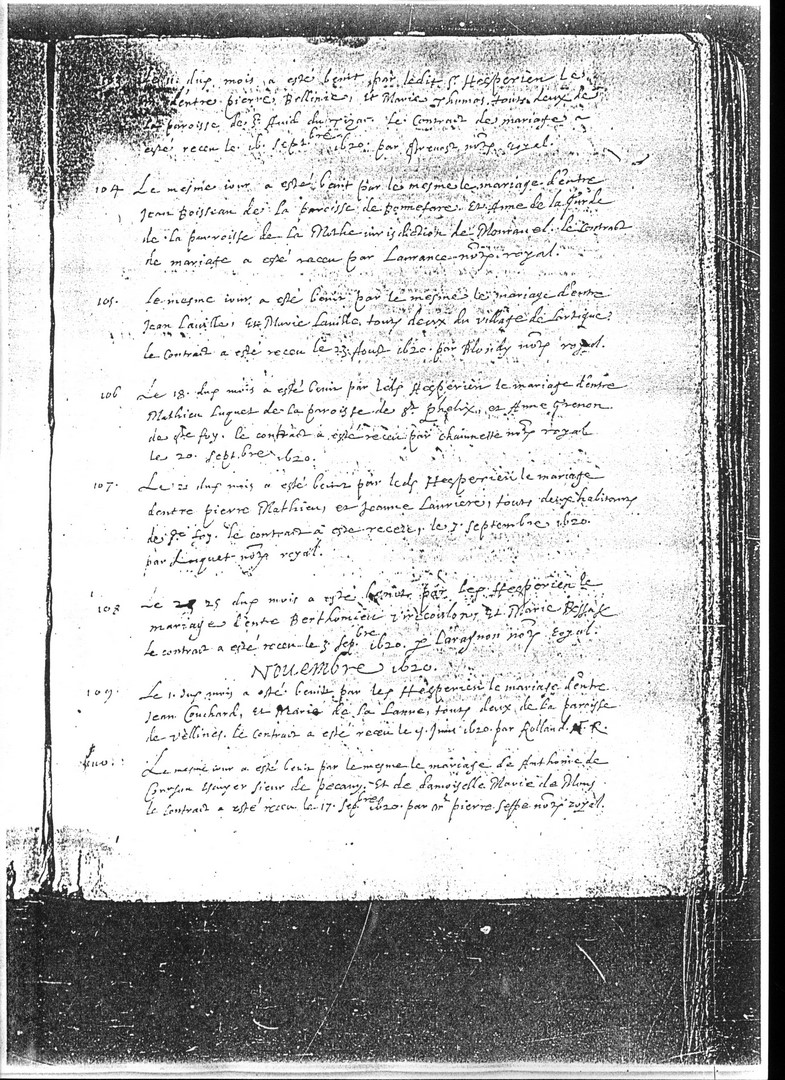 dud mois a esté benit par ledit Sr Hesperien le
dentre pierre Bellinie, et Marie Thomas, tous deux de
la paroisse de St Auid du . Le contract de mariage a
esté receu le 16 septbre 1620 par Preuost notre royal.
104 Le mesme iour a esté benit par le mesme le mariage d'entre
Jean Boisseau de la paroisse de Bonnefare Et Anne de la Garde
de la parroisse de La Mothe iurisdiction de Monrauel. le contract
de mariage a esté receu par Laurance notre royal.
105. Le mesme iour a esté benit par le mesme le mariage d'entre
Jean Lauille, Et Marie Lauille, tous deux du village de Lartigue,
le contract a esté receu le 23 Aout 1620. par notre royal.
106 Le 18. dud mois a esté benit par leds Hesperien le mariage d'entre
Mathieu Luquet de la paroisse de St phelix, et Anne Grenon
de Ste foy. le contract a esté receu par chaunette notre royal
le 20. septbre 1620.
107. Le 21 dud mois a esté benit par leds Hesperien le mariage
dentre pierre Mathieu, et Jeanne Lauriere, tous deux habitans
de Ste foy. le contract a esté receu, le 7 septembre 1620.
par Luquet notre royal.
108 Le 25 dud mois a esté benit par leds Hesperien le
mariage d'entre Berthomieu Et Marie Bessak
le contract a esté receu le 5 sepbre 1620. p Caragnon notre royal.
NOUEMbre 1620.
109. Le 1. dud mois a esté benit par leds Hesperien le mariage d'entre
Jean Couchard, Et Marie de la Lanne, tous deux de la paroisse
de vellines. le contract a esté receu le Juin 1620. par Rolland N. R.
110. Le mesme iour a esté benit par le mesme le mariage de Anthoine de
Courson Escuyer sieur de pecany, Et de damoiselle Marie de Mons
le contract a esté receu le 17. sepbre 1620. par mr pierre seffe notre royal.